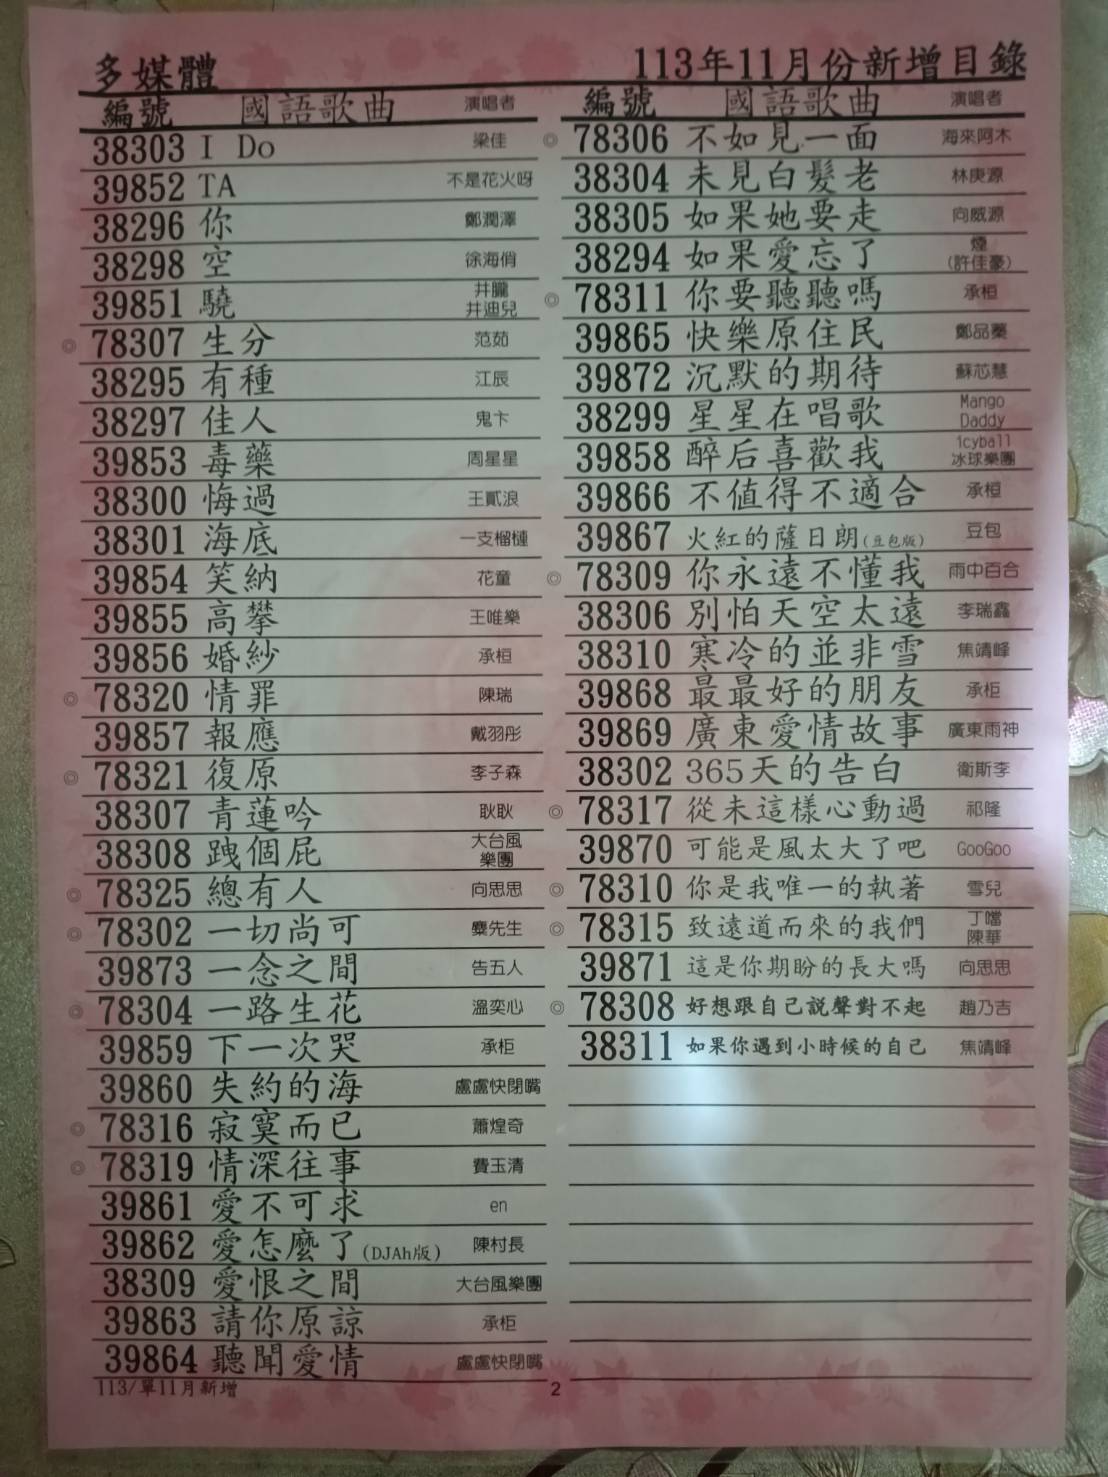 多媒體
113年11月份新增目錄
編號 國語歌曲 演唱者
38303 I Do 梁佳
39852 TA 不是花火呀
38296 你 鄭潤澤
38298 空 徐海俏
39851 驍 井朧 井迪兒
◎ 78307 生分 范茹
38295 有種 江辰
38297 佳人 鬼卞
39853 毒藥 周星星
38300 悔過 王貳浪
38301 海底 一支榴槤
39854 笑納 花童
39855 高攀 王唯樂
39856 婚紗 承桓
◎ 78320 情罪 陳瑞
39857 報應 戴羽彤
◎ 78321 復原 李子森
38307 青蓮吟 耿耿
38308 跩個屁 大台風樂團
◎ 78325 總有人 向思思
◎ 78302 一切尚可 麋先生
39873 一念之間 告五人
◎ 78304 一路生花 溫奕心
39859 下一次哭 承桓
39860 失約的海 盧盧快閉嘴
◎ 78316 寂寞而已 蕭煌奇
◎ 78319 情深往事 費玉清
39861 愛不可求 en
39862 愛怎麼了(DJAh版) 陳村長
38309 愛恨之間 大台風樂團
39863 請你原諒 承桓
39864 聽聞愛情 盧盧快閉嘴
113/單11月新增
編號 國語歌曲 演唱者
◎ 78306 不如見一面 海來阿木
38304 未見白髮老 林庚源
38305 如果她要走 向威源
38294 如果愛忘了 煙(許佳豪)
◎ 78311 你要聽聽嗎 承桓
39865 快樂原住民 鄭品蘂
39872 沉默的期待 蘇芯慧
38299 星星在唱歌 Mango Daddy
39858 醉后喜歡我 icyball 冰球樂團
39866 不值得不適合 承桓
39867 火紅的薩日朗(豆包版) 豆包
◎ 78309 你永遠不懂我 雨中百合
38306 別怕天空太遠 李瑞鑫
38310 寒冷的並非雪 焦靖峰
39868 最最好的朋友 承桓
39869 廣東愛情故事 廣東雨神
38302 365天的告白 衛斯李
◎ 78317 從未這樣心動過 祁隆
39870 可能是風太大了吧 GooGoo
◎ 78310 你是我唯一的執著 雪兒
◎ 78315 致遠道而來的我們 丁噹 陳華
39871 這是你期盼的長大嗎 向思思
◎ 78308 好想跟自己說聲對不起 趙乃吉
38311 如果你遇到小時候的自己 焦靖峰
2